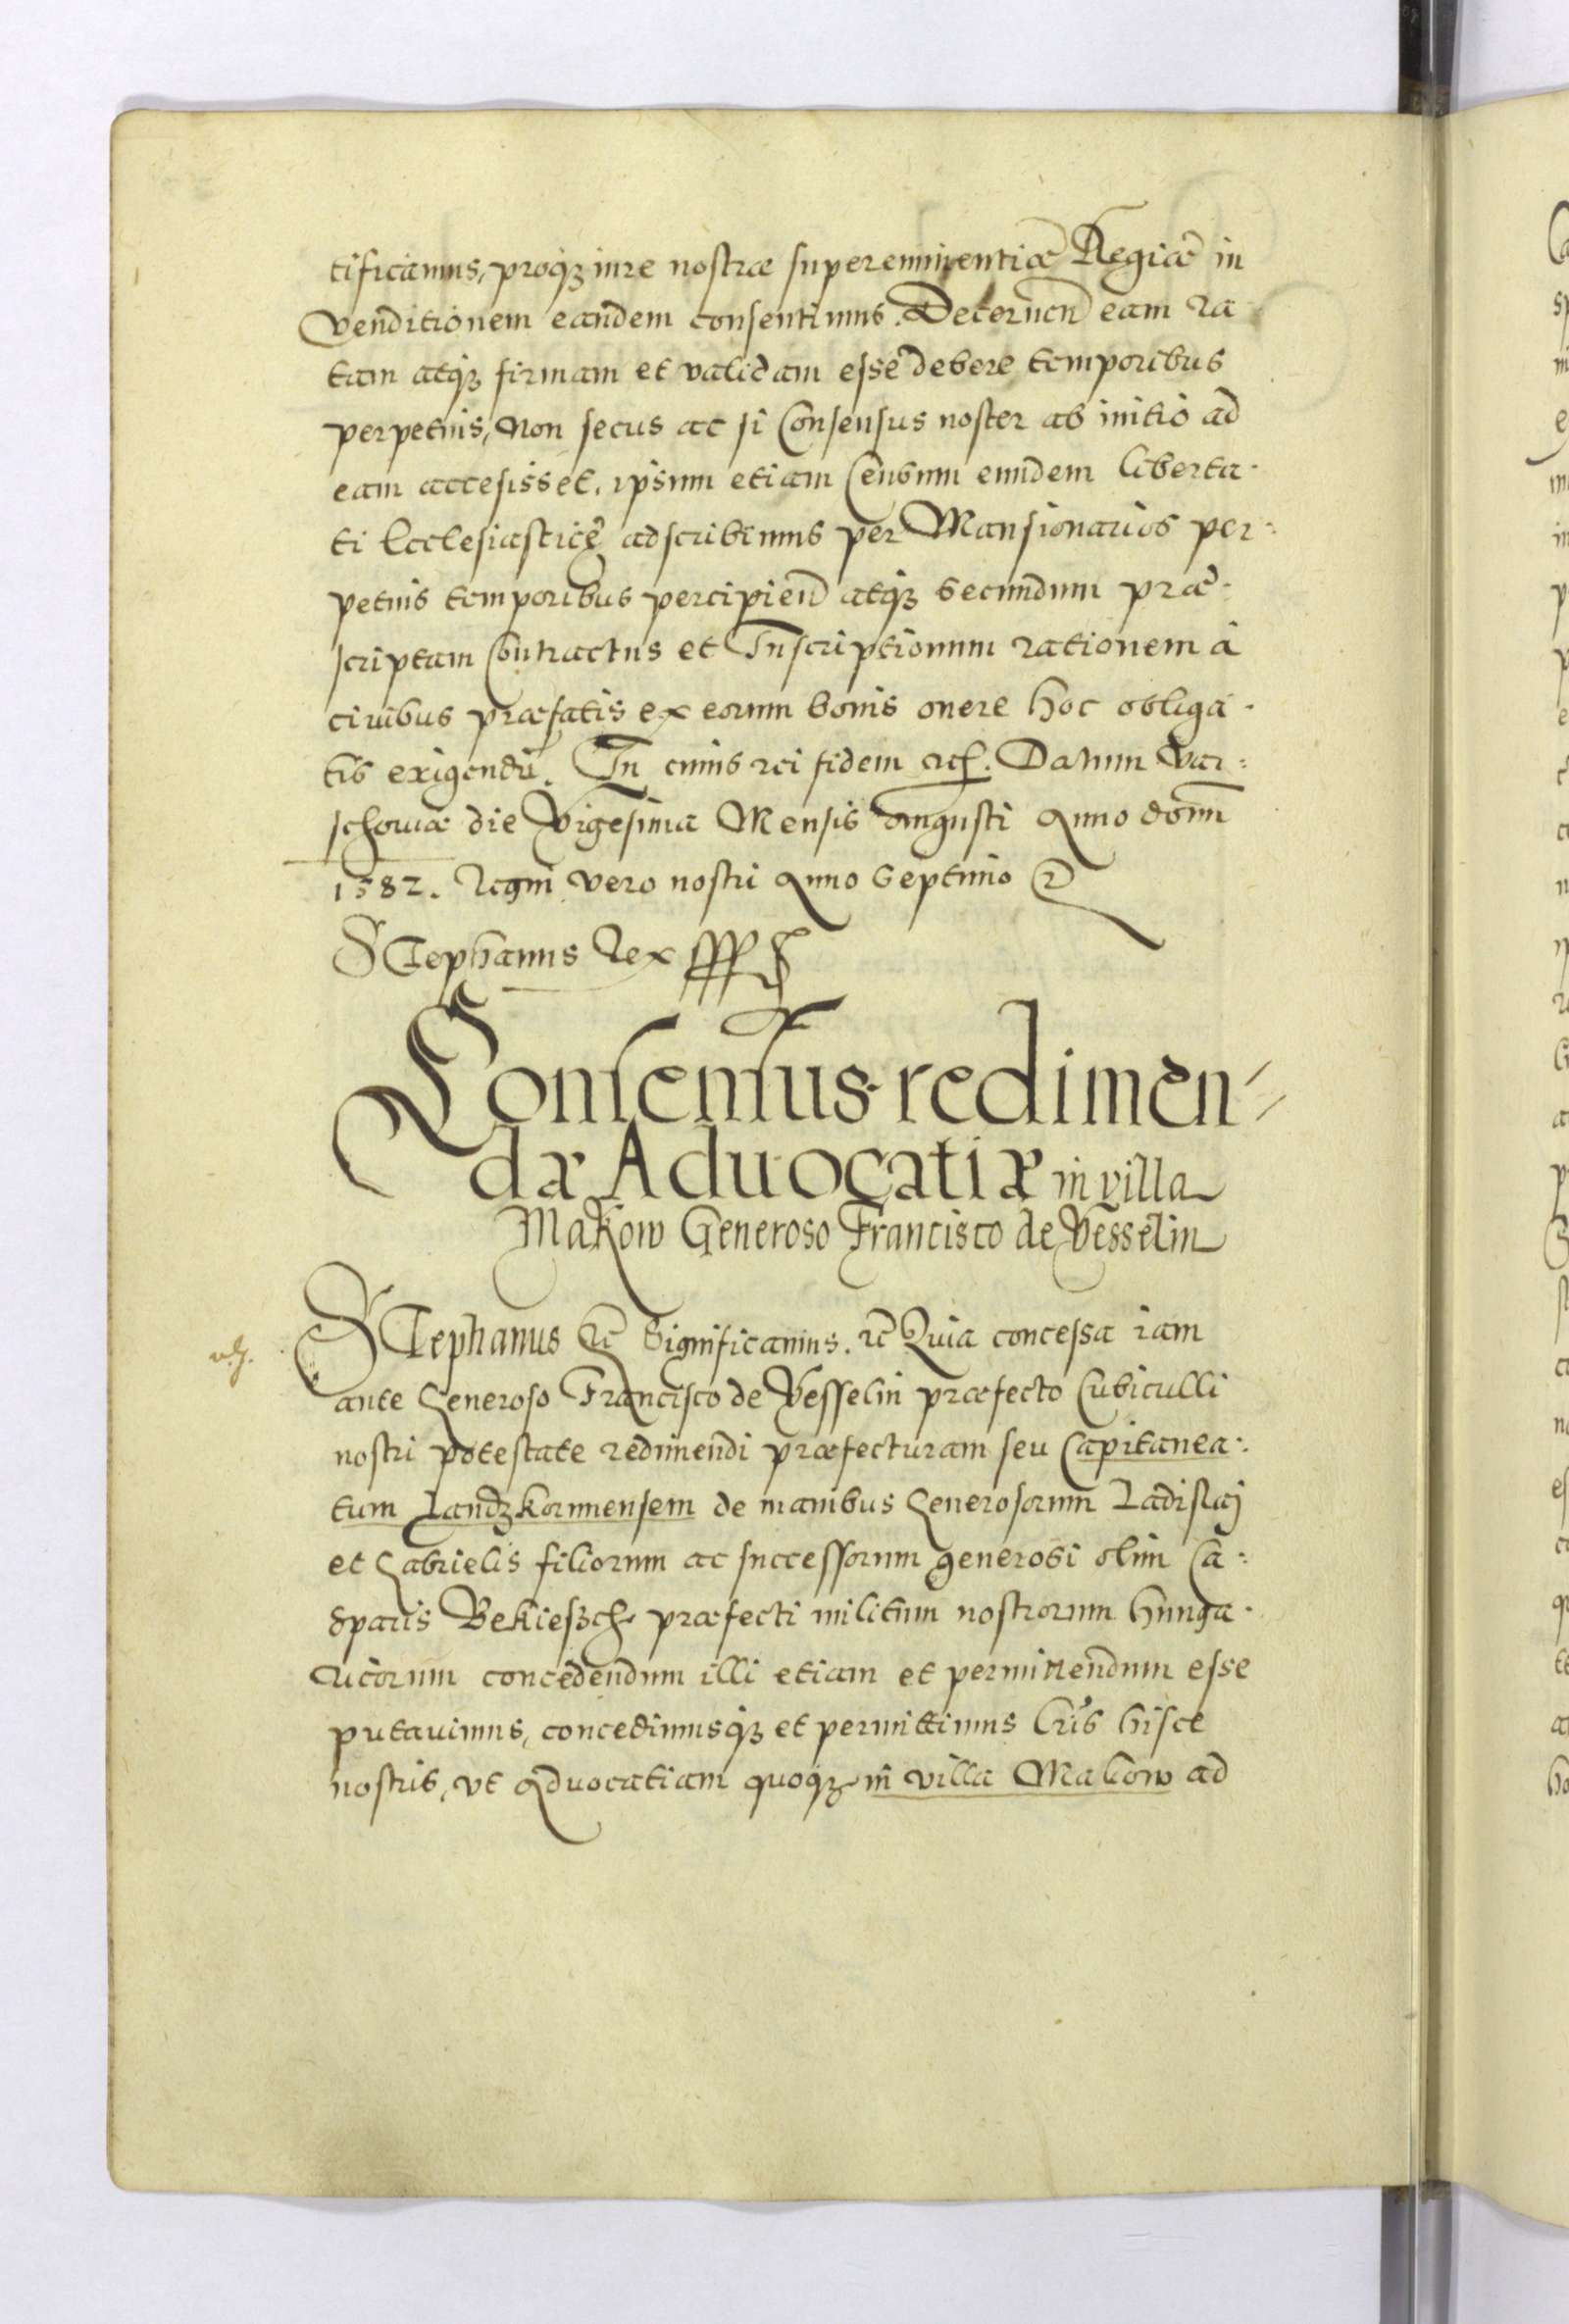 tificamus, proq₃ iure nostræ supereminentiæ Regiæ in
Venditionem eandem consentimus. Decernen̄ eam ra
tam atq₃ firmam et validam esse debere temporibus
perpetuis, Non secus ac si Consensus noster ab initio ad
eam accesisset, ipsum etiam Censum eundem liberta-
ti Ecclesiasticę adscribimus per Mansionarios per-
petuis temporibus percipien̄ atq₃ secundum præ-
scriptam Contractus et Inscriptionum rationem à
civibus præfatis ex eorum bonis onere hoc obliga-
tis exigendū. In cuius rei fidem etc. Datum Var-
schoviæ die Vigesima Mensis Augusti Anno domī
1582. Regni vero nostri Anno Septimo
Stephanus Rex
Consensus redimen-
dæ Advocatiæ in villa
Makow Generoso Francisco de Vesselin
Stephanus etc Significamus. etc Quia concessa iam
ante Generoso Francisco de Vesselin præfecto Cubiculli
nostri potestate redimendi præfecturam seu Capitanea-
tum Landzkorunensem de manibus Generosorum Ladislaj
et Gabrielis filiorum ac successorum generosi olim Ca-
sparis Bekieszch præfecti militum nostrorum hunga-
ricorum concedendum illi etiam et permittendum esse
putavimus, concedimusq₃ et permittimus lr̄is hisce
nostris, vt Advocatiam quoq₃ in villa Makow ad